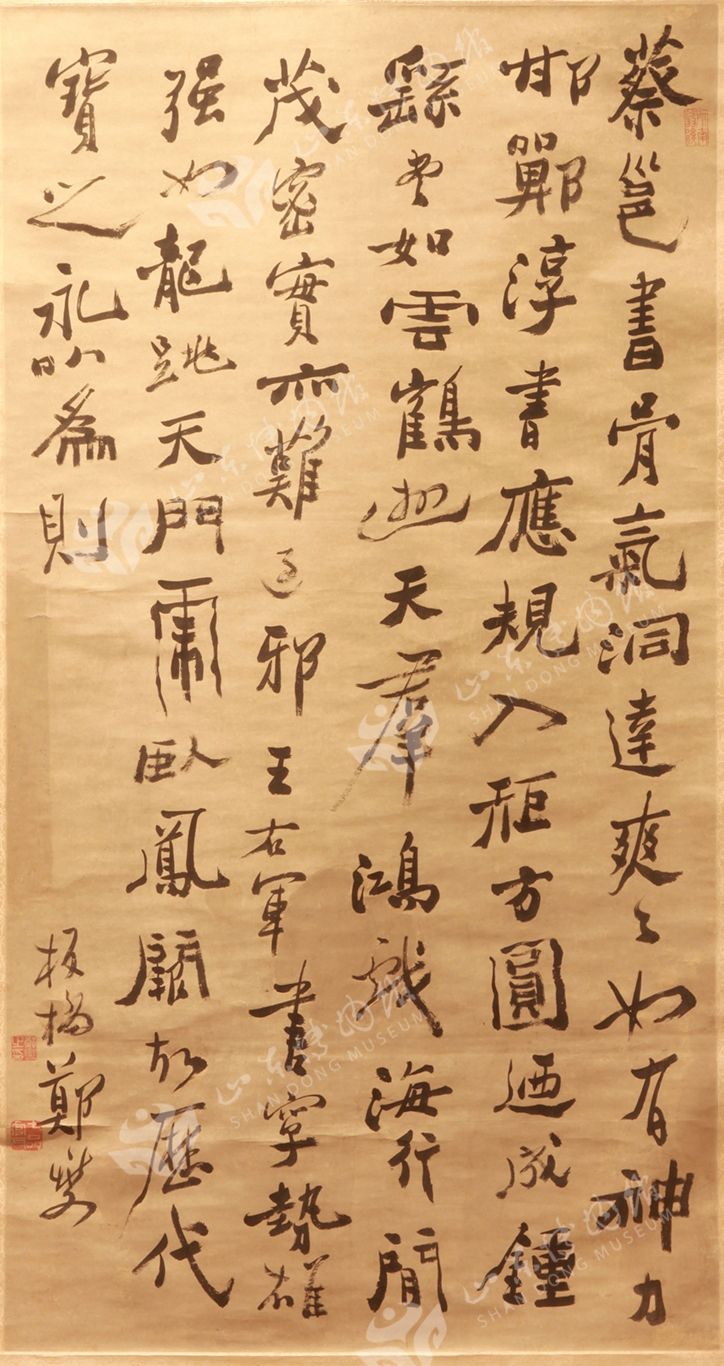 蔡邕書骨氣洞達爽〻如有神力
邯鄲淳書應規入矩方圓廼成鍾
繇書如雲鶴遊天羣鴻戲海行間
茂密實亦難過邪王右軍書字勢雄
强如龍跳天門虎臥鳳闕故歷代
寶之永以為則
板橋鄭燮
山东博物馆
SHAN DONG MUSEUM